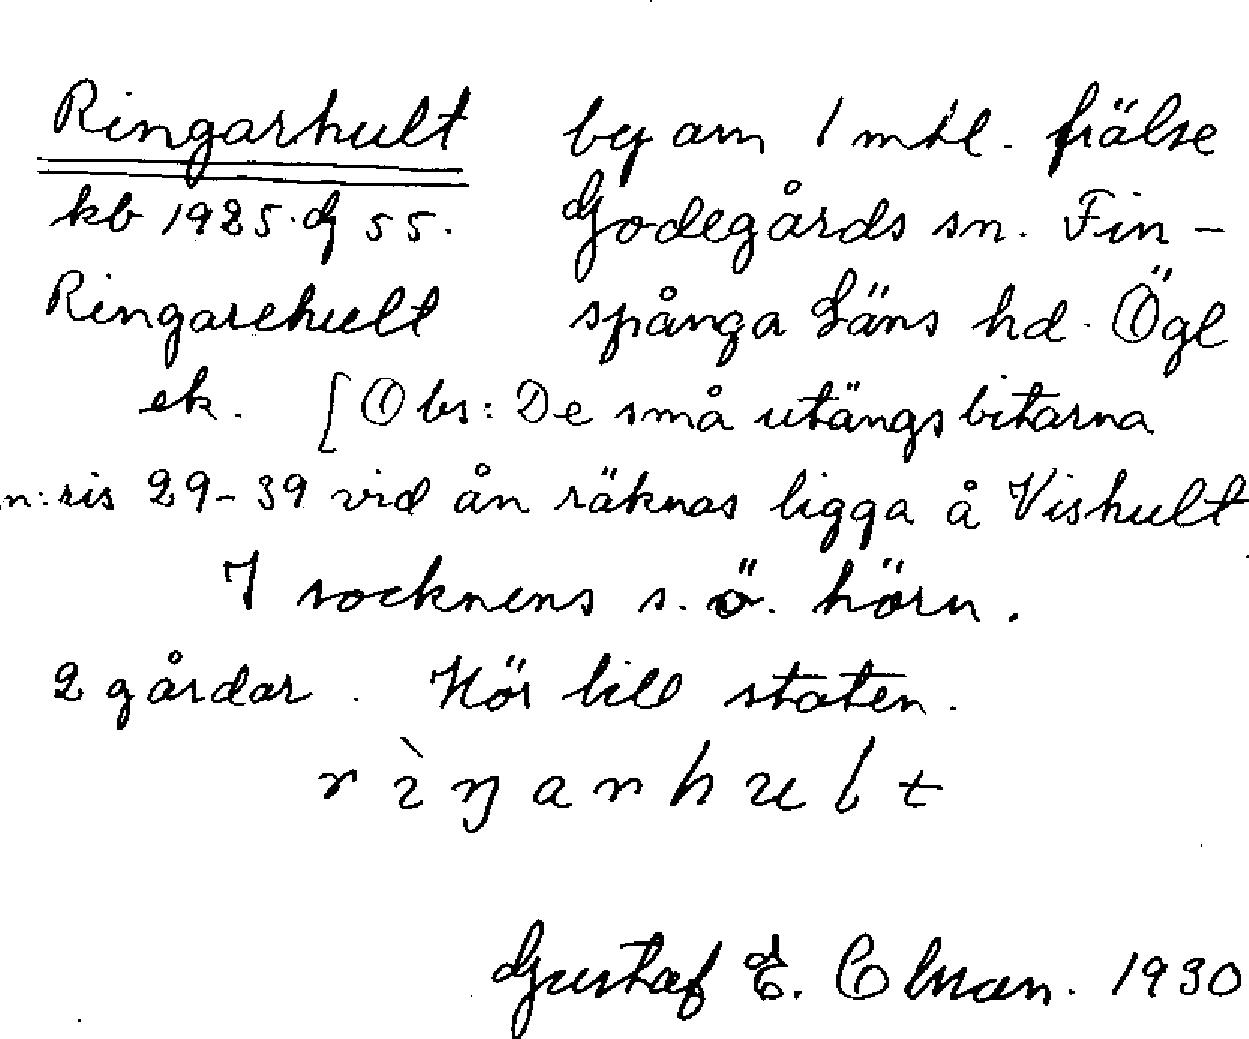 Ringarhult by om 1 mtl. frälse
kb 1925. dj 55. Godegårds sn. Fin-
Ringarehult spånga Läns hd. Ögl
ek. [Obs: De små utängsbitarna
n:ris 29-39 vid ån räknas ligga å Vishult
I socknens s. ö. hörn.
2 gårdar. Hör till staten.
r ì ŋ a r h u l t
Gustaf E. 1930